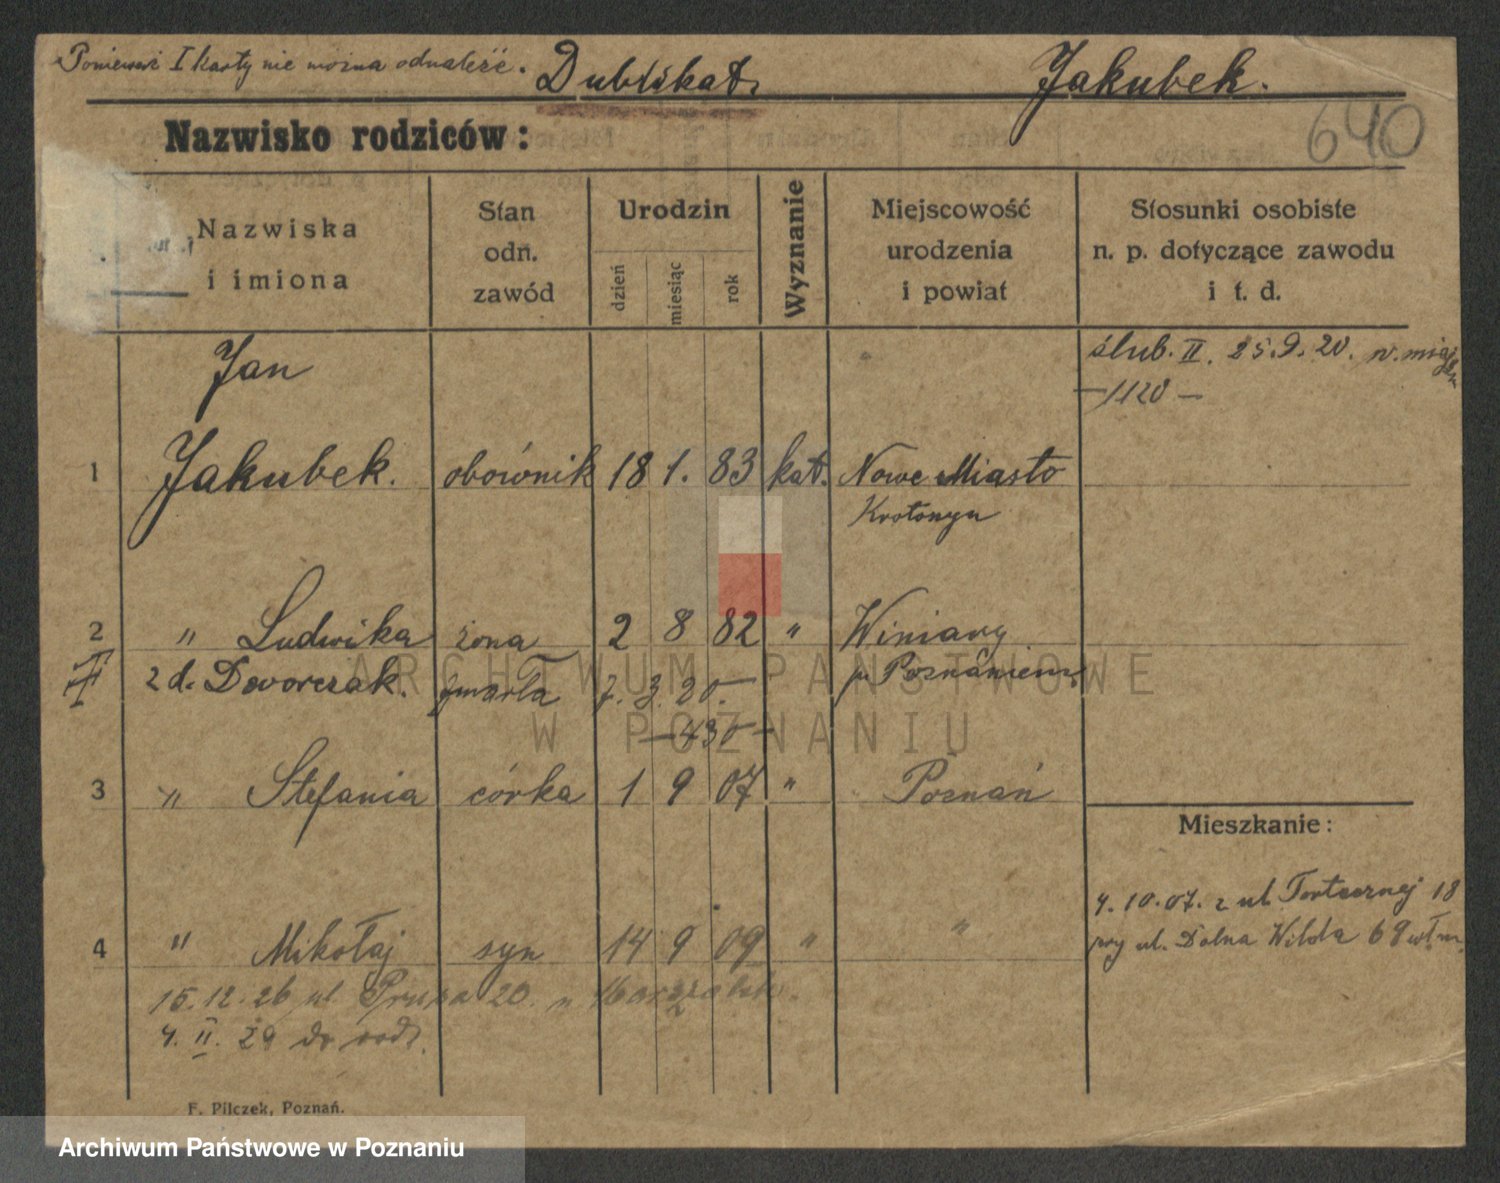 Ponieważ I karty nie można odnaleźć. Dublikat Jakubek.
640
Nazwisko rodziców:
Nazwiska i imiona
Stan odn. zawód
Urodzin
dzień miesiąc rok
Wyznanie
Miejscowość urodzenia i powiat
Stosunki osobiste n. p. dotyczące zawodu i t. d.
Jan
ślub. II. 25.9.20. w.
-1120-
1 Jakubek. obównik 18 1. 83 kat. Nowe Miasto
Krotoszyn
2 " Ludwika żona 2 8 82 " Winiary
II 2 d. Dworczak. zmarła 7. 3. 20. p. Poznaniem
-430-
3 " Stefania córka 1 9 07 " Poznań
Mieszkanie:
4. 10. 07. z ul. Fortecznej 18
przy ul. Dolna Wilda 69
4 " Mikołaj syn 14 9 09 " "
15.12.26 ul. Prusa 20. u
4. II. 29 do rodz.
F. Pilczek, Poznań.
ARCHIWUM PAŃSTWOWE
W POZNANIU
Archiwum Państwowe w Poznaniu